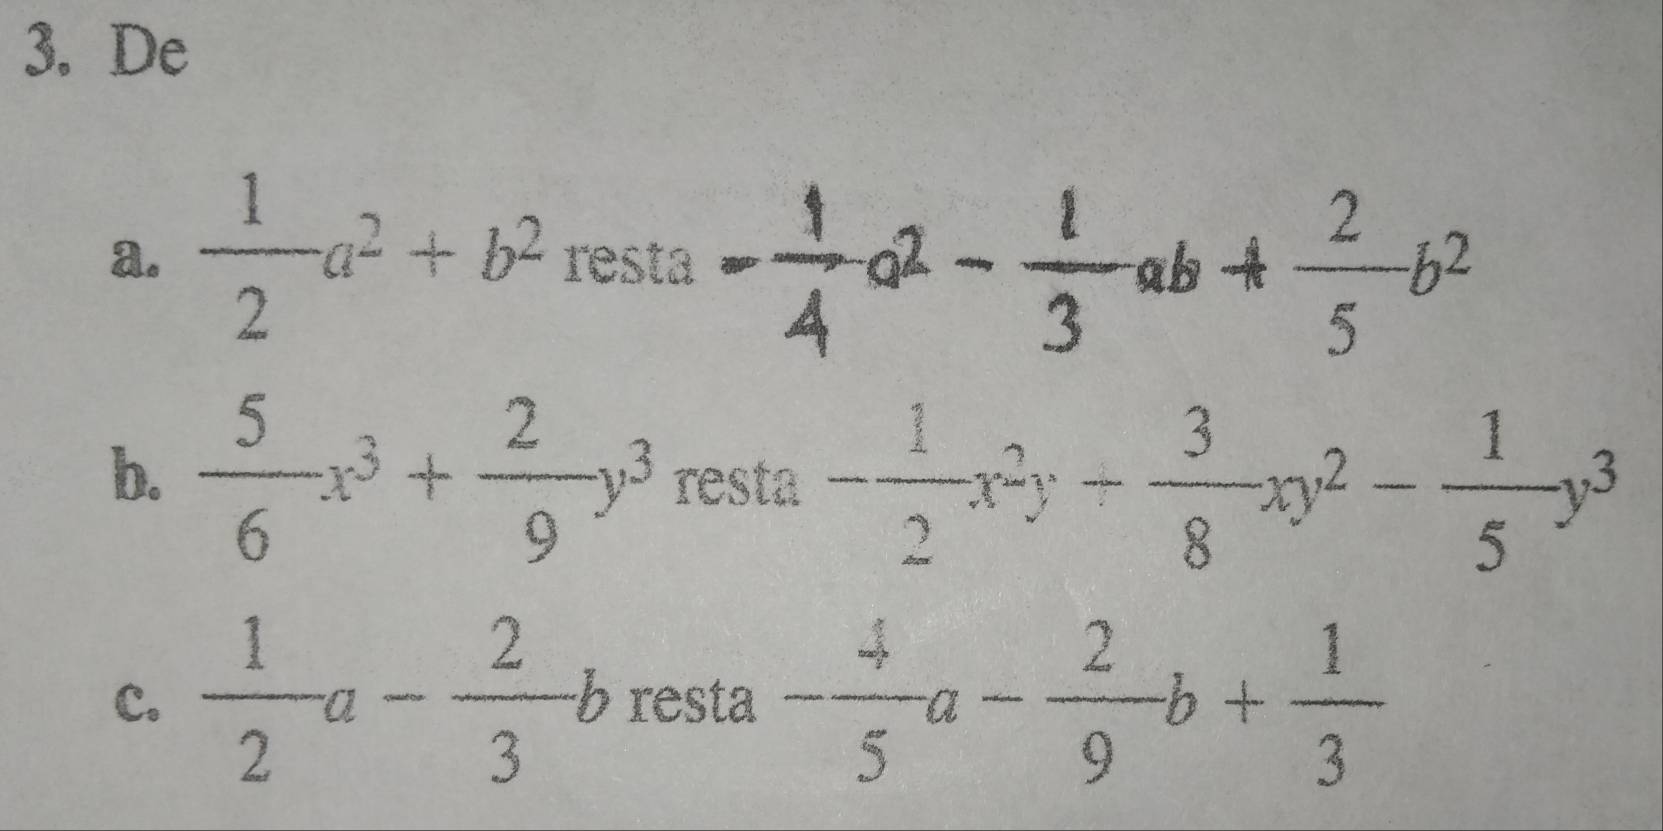 3. De
a. \frac{1}{2}a^2 + b^2 resta -\frac{1}{4}a^2 - \frac{1}{3}ab + \frac{2}{5}b^2
b. \frac{5}{6}x^3 + \frac{2}{9}y^3 resta -\frac{1}{2}x^2y + \frac{3}{8}xy^2 - \frac{1}{5}y^3
c. \frac{1}{2}a - \frac{2}{3}b resta -\frac{4}{5}a - \frac{2}{9}b + \frac{1}{3}